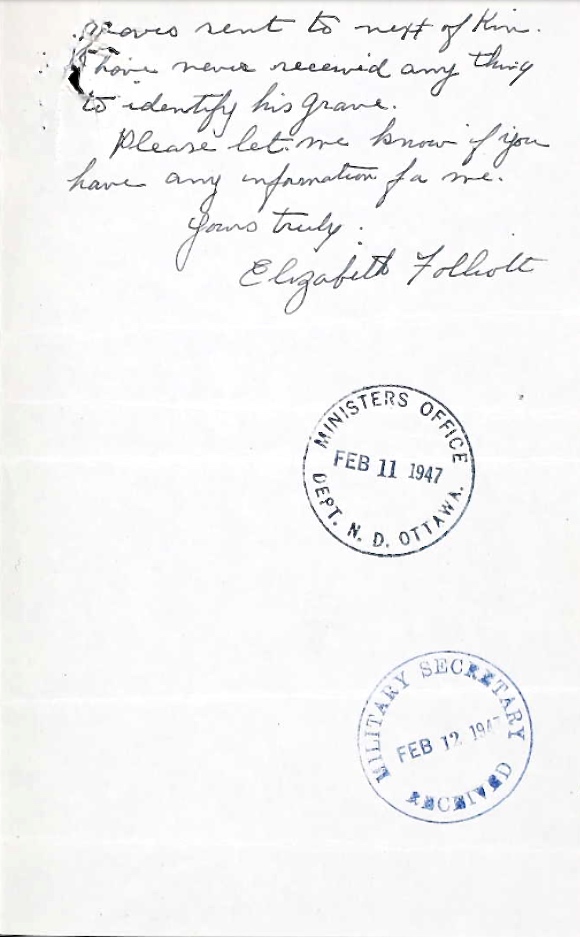 graves sent to next of Kin.
I have never received any thing
to identify his grave.
Please let me know if you
have any information for me.
Yours truly.
Elizabeth Folliott
MINISTERS OFFICE
FEB 11 1947
DEPT. N. D. OTTAWA.
MILITARY SECRETARY
FEB 12 1947
RECEIVED